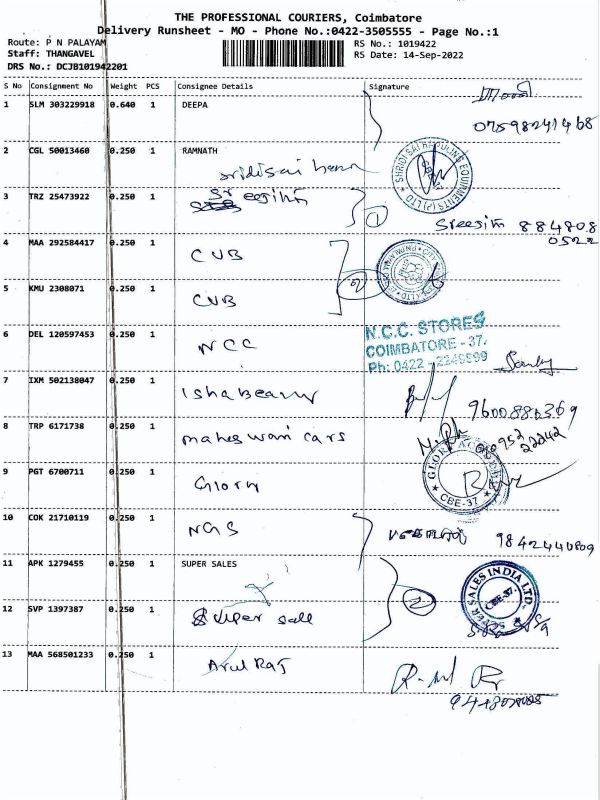 THE PROFESSIONAL COURIERS, Coimbatore
Delivery Runsheet - MO - Phone No.:0422-3505555 - Page No.:1
Route: P N PALAYAM
RS No.: 1019422
Staff: THANGAVEL
RS Date: 14-Sep-2022
DRS No.: DCJB101942201
S No Consignment No Weight PCS Consignee Details Signature
1 SLM 303229918 0.640 1 DEEPA
07598241468
2 CGL 50013460 0.250 1 RAMNATH
3 TRZ 25473922 0.250 1 Sreesihm
1
Sreesihm 884808
0522
4 MAA 292584417 0.250 1 CUB
2
5 KMU 2308071 0.250 1 CUB
N.C.C. STORES
COIMBATORE - 37.
Ph: 0422 - 2249899
6 DEL 120597453 0.250 1 NCC
7 IXM 502138047 0.250 1
8 TRP 6171738 0.250 1 maheswari cars
9 PGT 6700711 0.250 1 Glory
CBE-37
10 COK 21710119 0.250 1 NGS
9842440809
11 APK 1279455 0.250 1 SUPER SALES
2
SUPER SALES INDIA LTD.
CBE-37.
12 SVP 1397387 0.250 1 Super sale
13 MAA 568501233 0.250 1 Arul Raj